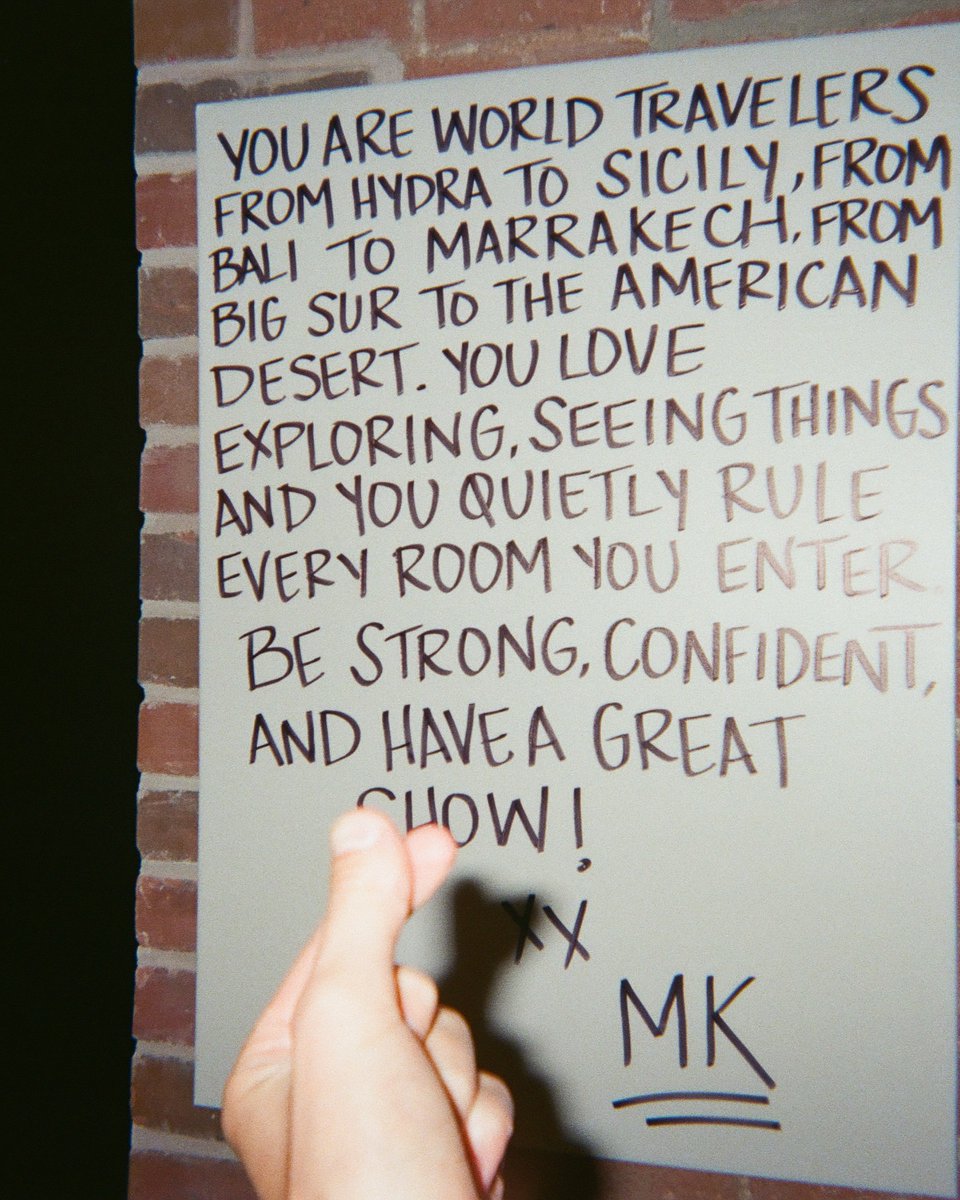 YOU ARE WORLD TRAVELERS
FROM HYDRA TO SICILY, FROM
BALI TO MARRAKECH, FROM
BIG SUR TO THE AMERICAN
DESERT. YOU LOVE
EXPLORING, SEEING THINGS
AND YOU QUIETLY RULE
EVERY ROOM YOU ENTER.
BE STRONG, CONFIDENT,
AND HAVE A GREAT
SHOW!
XX
MK